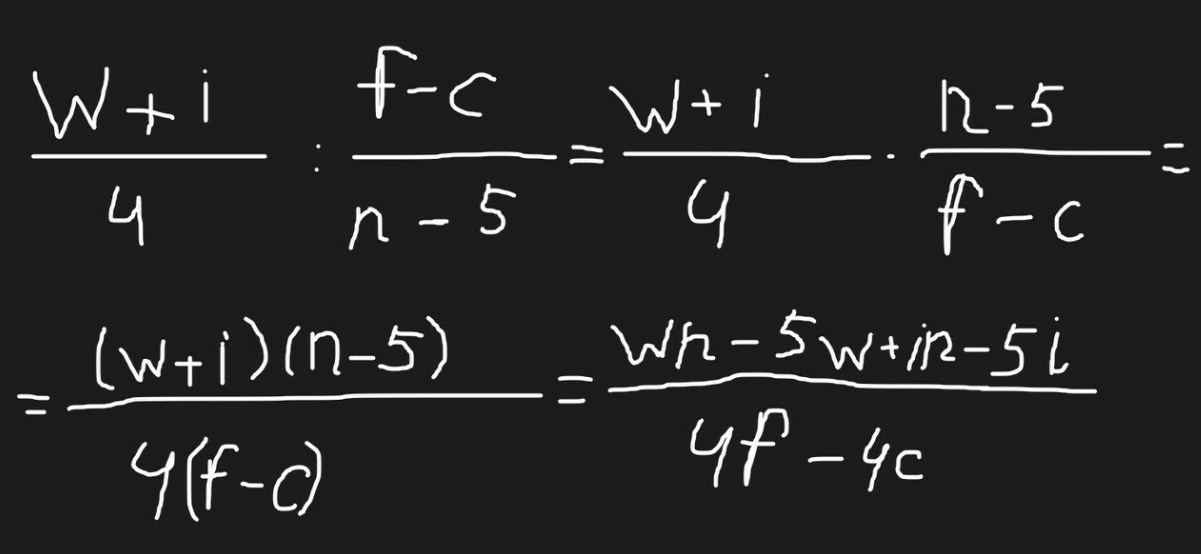 (w+i)/4 : (f-c)/(n-5) = (w+i)/4 · (n-5)/(f-c) =
= ((w+i)(n-5))/(4(f-c)) = (wn-5w+in-5i)/(4f-4c)